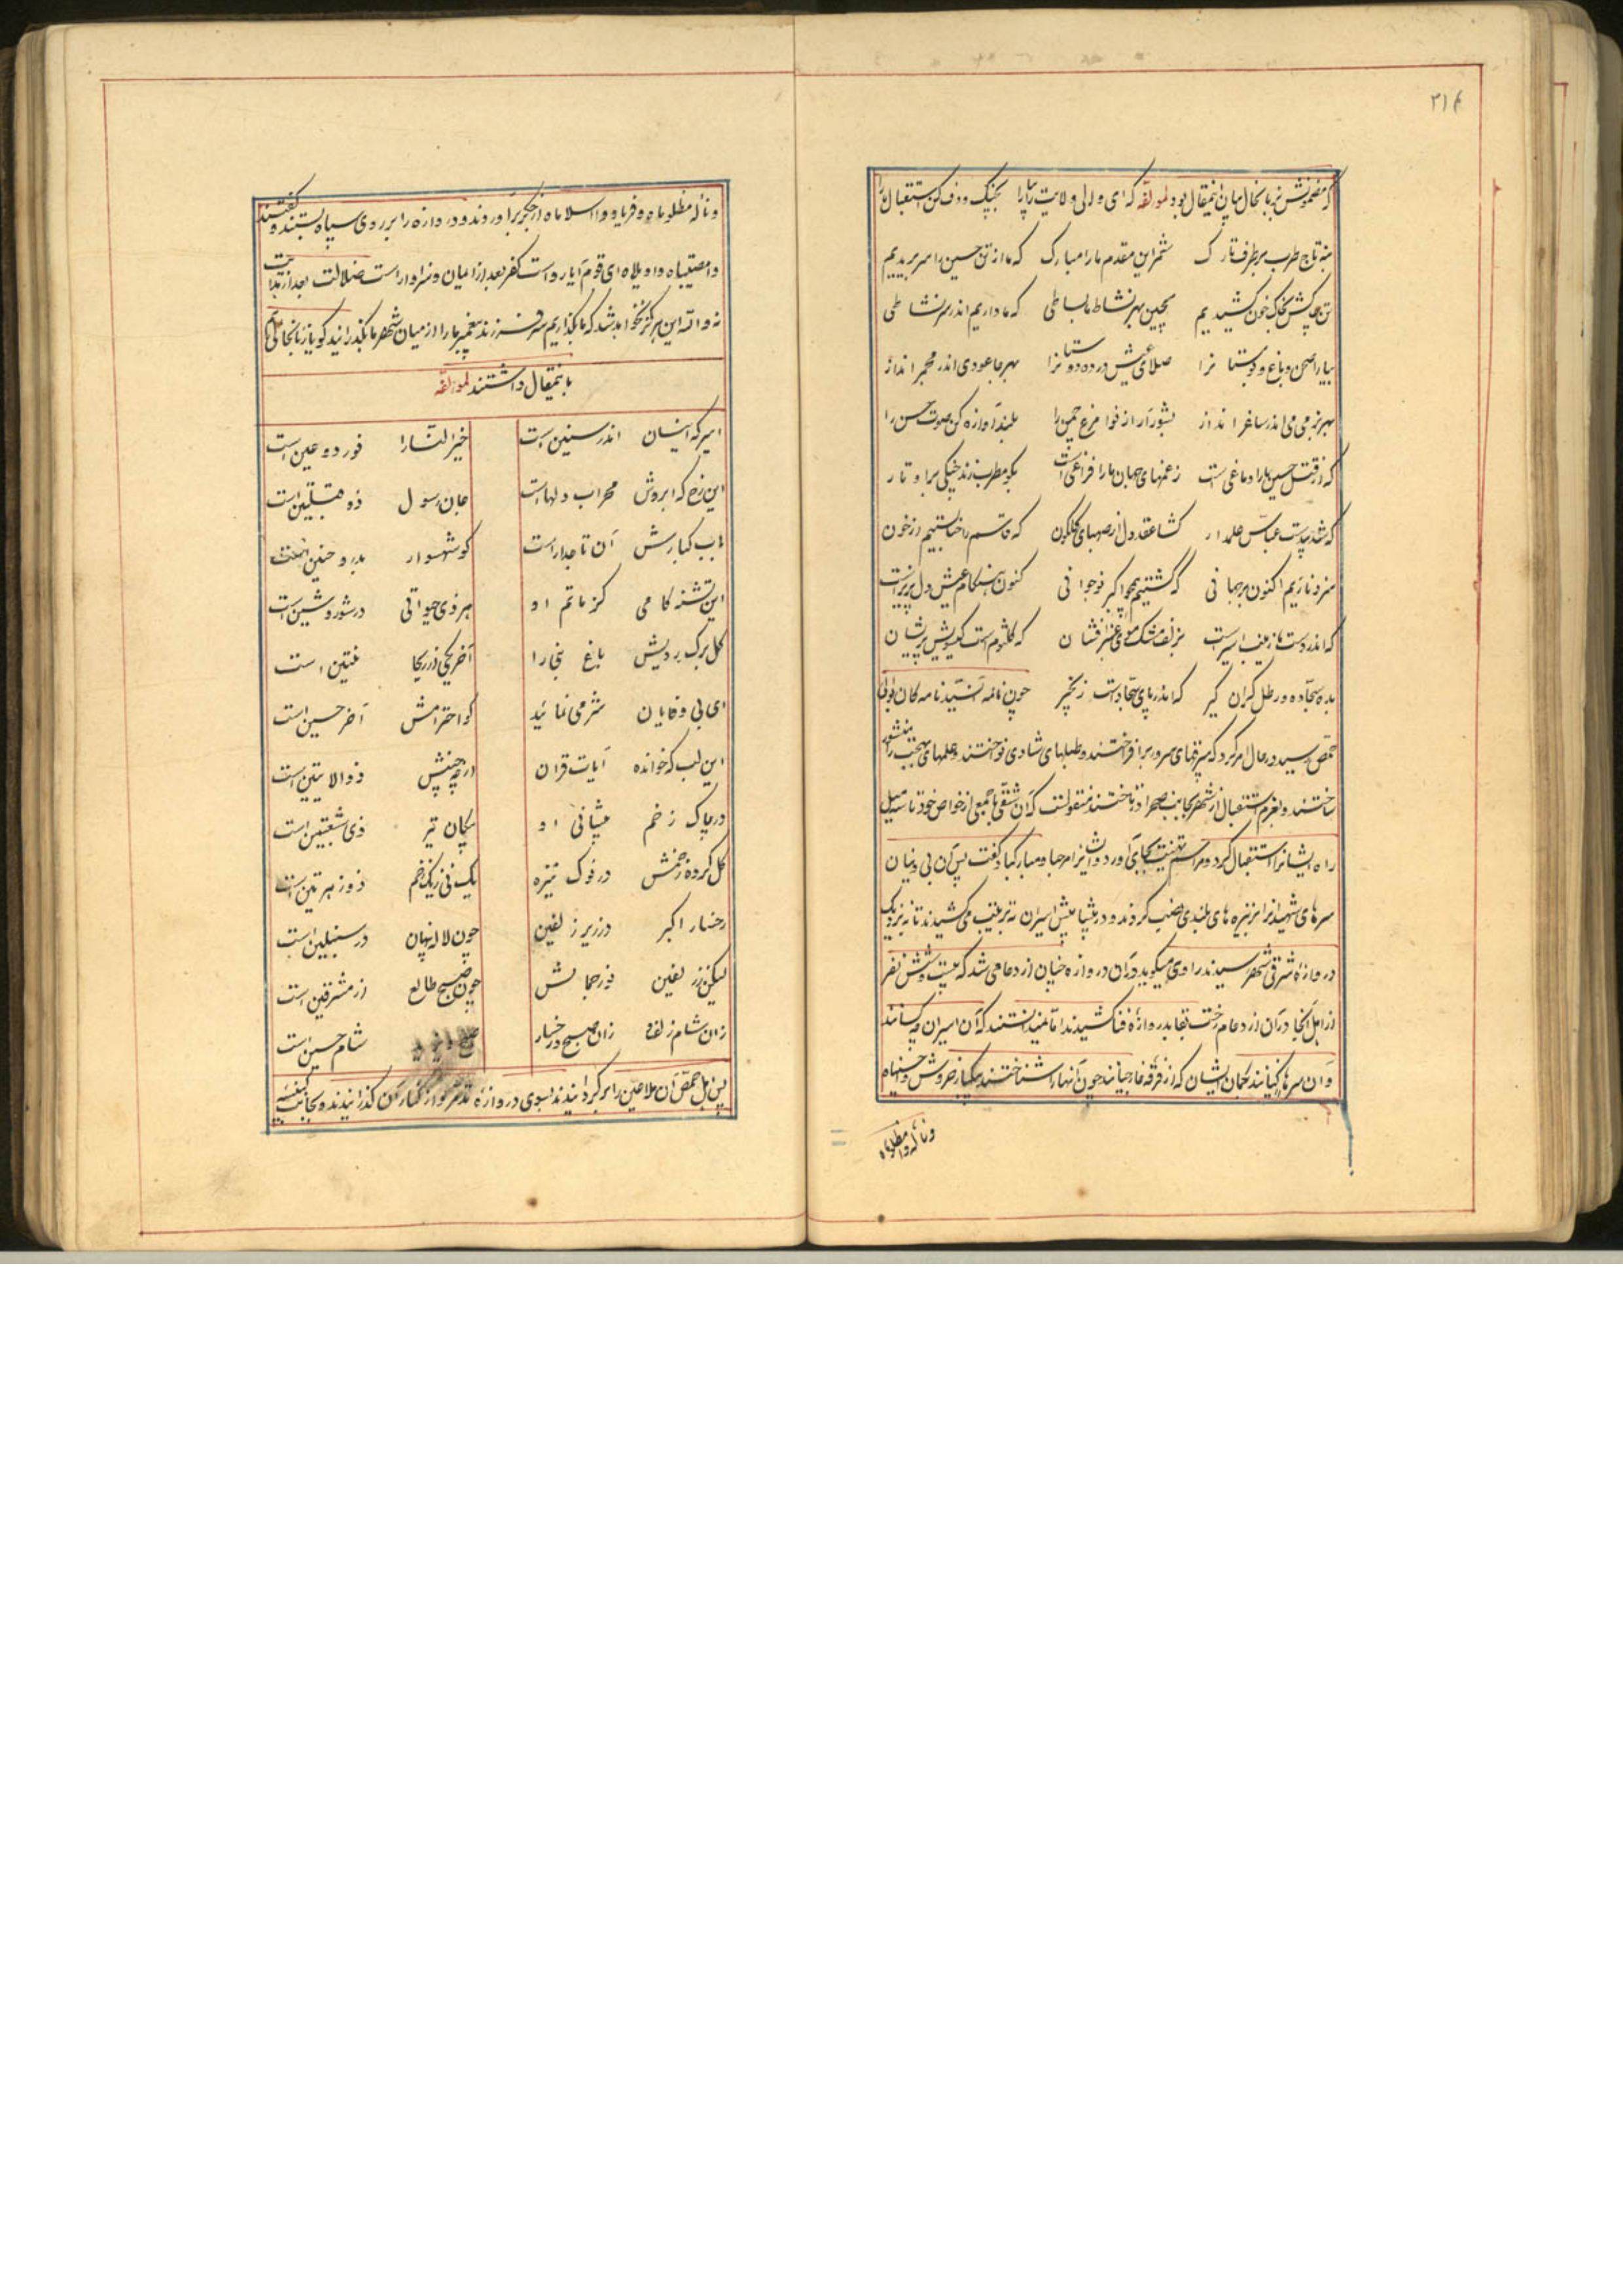 ۳۱۴
که مضمونش بزبانحال باین اینمقال بود لمولفه که ای والی ولایت را بپارا بچنگ و دف کن استقبال را
بنه تاج طرب بر طرف تارک شمر این مقدم ما را مبارک که ما از تن حسین را سر بریدیم
تن بخاک خون کشیدیم بچین بهر نشاط ما بساطی که ما داریم اندر سر نشاطی
بیارا صحن و باغ و بوستانرا صلای عیش در ده دوستانرا بهر جا عودی اندر مجمر انداز
بهر بزمی می اندر ساغر انداز بشور آر از نوا مرغ چمن را بلند آوازه کن صوت حسن را
که از قتل حسین ما را دماغی است ز غمهای جهان ما را فراغی است بگو مطرب زند چنگی بر اوتار
که شد بیدست عباس علمدار گشا عقد دل از صهبای گلگون که قاسم را خنا بستیم از خون
سزد نازیم اکنون بر جهانی که کشتیم همچو اکبر نوجوانی کنون هنگام عیش دلپذیر است
که اندر دست ما زینب اسیر است بزلف مشک موی عنبر افشان که کلثوم است گیسویش پریشان
بده سجاده و رطل گران گیر که اندر پای سجاد است زنجیر چون نامه
حمص رسید در حال امر کرد که بیرقهای سرور برافراختند و طبلهای شادی نواختند و علمهای
ساختند و بعزم استقبال از شهر بجانب صحرا در تاختند منقولست که آن شقی با جمعی از خواص خود تا سه میل
راه ایشانرا استقبال کرد و مراسم تهنیت بجای آورد و ایشانرا مرحبا و مبارکباد گفت پس آن بی دینان
سرهای شهیدانرا بر نیزه های بلندی نصب کردند و در پیشاپیش اسیران به ترتیب می کشیدند تا به نزدیک
دروازه شرقی شهر رسیدند راوی میگوید در آن دروازه چنان ازدحامی شد که بیست و شش نفر
از اهل آنجا در آن ازدحام رخت بقا بدروازه فنا کشیدند اما نمیدانستند که آن اسیران چه کسانند
و آن سرها از کیانند بگمان ایشان که از فرقه خارجیانند چون آنها را شناختند بیکبار خروش واحسیناه
و ناله وا مظلوماه
و ناله مظلوماه و فریاد وا اسلاماه از جگر برآوردند و دروازه را بر روی سپاه بستند و گفتند
وا مصیبتاه وا ویلاه ای قوم آیا رواست کفر بعد از ایمان و سزاوار است ضلالت بعد از هدایت
نه والله این هرگز نخواهد شد که ما بگذاریم سر فرزند پیغمبر ما را از میان شهر ما بگذرانید گویا زبانحال
باینمقال داشتند لمولفه
این سر که اینسان اندر سنین است خیرالنسا را نور دو عین است
این رخ که ابروش محراب دلهاست جان رسول ذو قبلتین است
باب کبارش آن تاجدار است کو شهسوار بدر و حنین است
این تشنه کامی کز ماتم او هر ذی حیاتی در شور و شین است
گل برگ رویش باغ بخارا آخر
ای بی وفایان شرمی نمائید کو احترامش آخر حسین است
این لب که خوانده آیات قران ذو الایتین است
در پاک زخم پیشانی او پیکان تیر ذی شعبتین است
گل کرده زخمش در نوک نیزه یک نی ز یک زخم
رخسار اکبر در زیر زلفین چون لاله پنهان در سنبلین است
لیکن ز زلفین نور جمالش چون صبح طالع از مشرقین است
زان شام زلف و زان صبح رخسار شام حسین است
پس اهل حمص آن ملاعین را برگردانیدند بسوی دروازه از کنار آن گذرانیدند و بجانب کنیسه